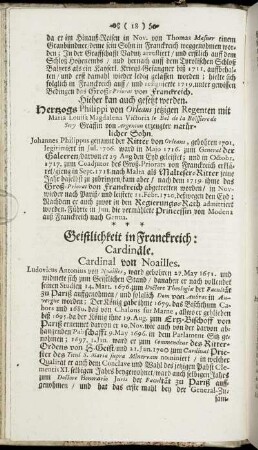 ( 18 )
da er im Hinaus-Reisen in Nov. von Thomas Masner einem
Graubündner deme sein Sohn in Franckreich weggenommen wor-
den; In der Graffschafft Vaduz arrestiert, und erstlich auf dem
Schloß Hohenems, und hernach auf dem Tyrolischen Schloß
als ein Kayserl. Kriegs-Gefangner biß 1711. aufbehal-
ten, und erst damahl wieder ledig gelassen worden; hielte sich
folglich in Franckreich auf, und resignierte 1719. unter gewissen
Bedingen das Groß-Priorat von Franckreich.
Hieher kan auch gesetzt werden.
Hertzogs Philippi von Orleans jetzigen Regenten mit
Maria Louisa Magdalena Victoria le Bel de la Boissiere de
Sery Gräfin von Argenton erzeugter natür-
licher Sohn.
Johannes Philippus genannt der Ritter von Orleans, gebohren 1701.
legitimiert in Jul. 1706. ward in Majo 1716. zum General der
Galeeren, darvon er 29 Aug den Eyd geleistet; und in Octobr.
1717. zum Coadjutor des Groß-Priorats von Franckreich erklä-
ret, gieng in Sept. 1718. nach Malta als Malteser-Ritter seine
Jahr daselbst zu zubringen, kam aber, nach dem 1719 ihme das
Groß-Priorat von Franckreich abgetretten worden, in Nov.
wieder nach Pariß, und leistet 26. Febr. 1720. deswegen den Eyd;
Nachdem er auch zwor in den Regierungs-Rath admittiert
worden. Führte in Jun. die vermählte Princeßin von Modena
auß Franckreich nach Genua.
Geistlichkeit in Franckreich:
Cardinäle.
Cardinal von Noailles.
Ludovicus Antonius von Noailles, ward gebohren 27. May 1651. und
widmete sich zum Geistlichen Stand, danahen er nach vollendet
seinen Studien 14. Mart. 1676. zum Doctore Theologiæ der Facultät
zu Pariß aufgenohmen, und folglich Dom von Aubrac in Au-
vergne worden; Der König gab ihme 1679. das Bischthum Ca-
hors und 1680. das von Chalons sur Marne, allwo er geblieben
biß 1695. da der König ihne 19. Aug. zum Ertz-Bischoff von
Pariß ernennet darvon er 10. Nov. wie auch von der darzu ge-
hangenden Pairschafft 9. May 1696. in dem Parlament Sitz ge-
nohmen; 1697. 1. Jun. ward er zum Commendeur des Ritter-
Ordens von H. Geist, und 21. Jun. 1700 zum Cardinal Prie-
ster des Titul S. Maria supra Minervam nominiert, in welcher
Qualität er auch dem Conclave und Wahl des jetzigen Pabst Cle-
mentis XI. selbigen Jahrs beygewohnet, ward auch selbigen Jahrs
zum Doctore Honorario Juris der Facultät zu Pariß auf-
genohmen, und hat das erste mahl bey der General-Zu-
sam-